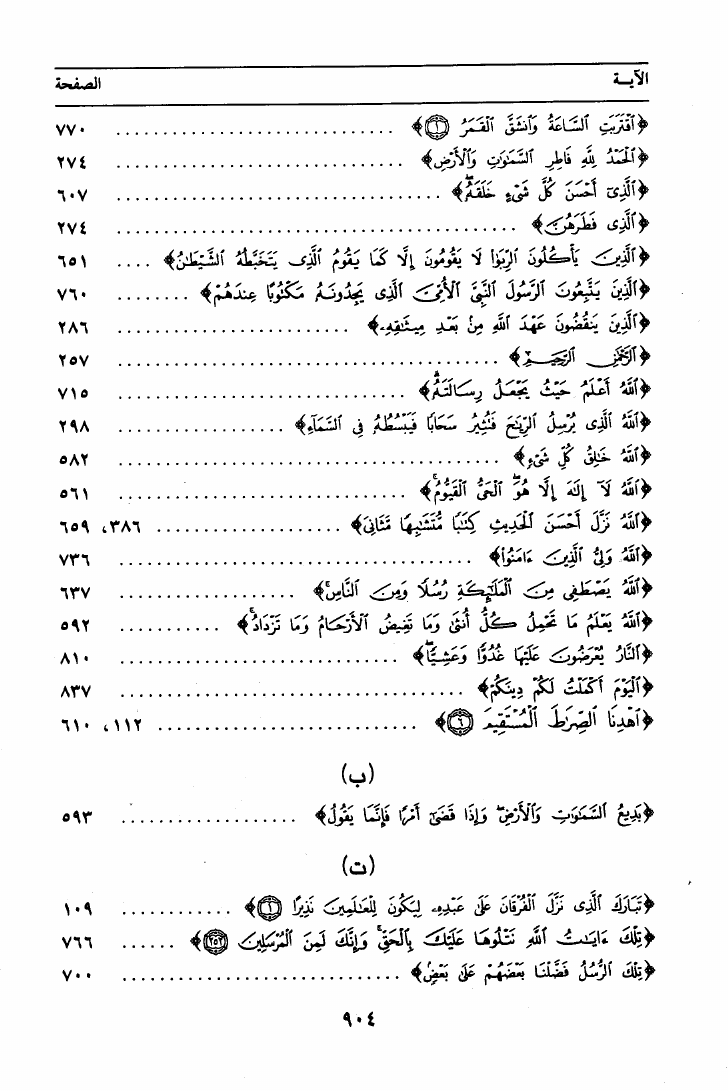 الآيـة الصفحة
﴿ٱقْتَرَبَتِ ٱلسَّاعَةُ وَٱنشَقَّ ٱلْقَمَرُ ١﴾ ............................ ٧٧٠
﴿ٱلْحَمْدُ لِلَّهِ فَاطِرِ ٱلسَّمَٰوَٰتِ وَٱلْأَرْضِ﴾ ............................ ٢٧٤
﴿ٱلَّذِىٓ أَحْسَنَ كُلَّ شَىْءٍ خَلَقَهُۥ﴾ ............................ ٦٠٧
﴿ٱلَّذِى فَطَرَهُنَّ﴾ ............................ ٢٧٤
﴿ٱلَّذِينَ يَأْكُلُونَ ٱلرِّبَوٰا۟ لَا يَقُومُونَ إِلَّا كَمَا يَقُومُ ٱلَّذِى يَتَخَبَّطُهُ ٱلشَّيْطَٰنُ﴾ .... ٦٥١
﴿ٱلَّذِينَ يَتَّبِعُونَ ٱلرَّسُولَ ٱلنَّبِىَّ ٱلْأُمِّىَّ ٱلَّذِى يَجِدُونَهُۥ مَكْتُوبًا عِندَهُمْ﴾ ........ ٧٦٠
﴿ٱلَّذِينَ يَنقُضُونَ عَهْدَ ٱللَّهِ مِنۢ بَعْدِ مِيثَٰقِهِۦ﴾ ........................ ٢٨٦
﴿ٱلرَّحْمَٰنِ ٱلرَّحِيمِ﴾ ............................ ٢٥٧
﴿ٱللَّهُ أَعْلَمُ حَيْثُ يَجْعَلُ رِسَالَتَهُۥ﴾ ............................ ٧١٥
﴿ٱللَّهُ ٱلَّذِى يُرْسِلُ ٱلرِّيَٰحَ فَتُثِيرُ سَحَابًا فَيَبْسُطُهُۥ فِى ٱلسَّمَآءِ﴾ ................. ٢٩٨
﴿ٱللَّهُ خَٰلِقُ كُلِّ شَىْءٍ﴾ ............................ ٥٨٢
﴿ٱللَّهُ لَآ إِلَٰهَ إِلَّا هُوَ ٱلْحَىُّ ٱلْقَيُّومُ﴾ ............................ ٥٦١
﴿ٱللَّهُ نَزَّلَ أَحْسَنَ ٱلْحَدِيثِ كِتَٰبًا مُّتَشَٰبِهًا مَّثَانِىَ﴾ ................... ٣٨٦، ٦٥٩
﴿ٱللَّهُ وَلِىُّ ٱلَّذِينَ ءَامَنُوا۟﴾ ............................ ٧٣٦
﴿ٱللَّهُ يَصْطَفِى مِنَ ٱلْمَلَٰٓئِكَةِ رُسُلًا وَمِنَ ٱلنَّاسِ﴾ ................... ٦٣٧
﴿ٱللَّهُ يَعْلَمُ مَا تَحْمِلُ كُلُّ أُنثَىٰ وَمَا تَغِيضُ ٱلْأَرْحَامُ وَمَا تَزْدَادُ﴾ .......... ٥٩٢
﴿ٱلنَّارُ يُعْرَضُونَ عَلَيْهَا غُدُوًّا وَعَشِيًّا﴾ ............................ ٨١٠
﴿ٱلْيَوْمَ أَكْمَلْتُ لَكُمْ دِينَكُمْ﴾ ............................ ٨٣٧
﴿ٱهْدِنَا ٱلصِّرَٰطَ ٱلْمُسْتَقِيمَ ٦﴾ .......................... ١١٢، ٦١٠
(ب)
﴿بَدِيعُ ٱلسَّمَٰوَٰتِ وَٱلْأَرْضِ وَإِذَا قَضَىٰٓ أَمْرًا فَإِنَّمَا يَقُولُ﴾ .................. ٥٩٣
(ت)
﴿تَبَارَكَ ٱلَّذِى نَزَّلَ ٱلْفُرْقَانَ عَلَىٰ عَبْدِهِۦ لِيَكُونَ لِلْعَٰلَمِينَ نَذِيرًا ١﴾ ........... ١٠٩
﴿تِلْكَ ءَايَٰتُ ٱللَّهِ نَتْلُوهَا عَلَيْكَ بِٱلْحَقِّ وَإِنَّكَ لَمِنَ ٱلْمُرْسَلِينَ ٢٥٢﴾ ...... ٧٦٦
﴿تِلْكَ ٱلرُّسُلُ فَضَّلْنَا بَعْضَهُمْ عَلَىٰ بَعْضٍ﴾ ............................ ٧٠٠
٩٠٤